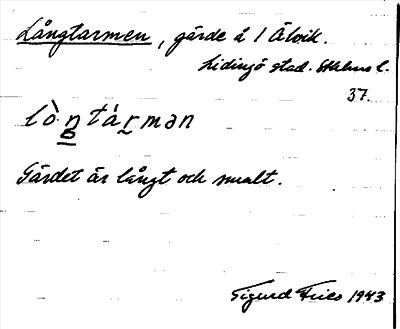 Långtarmen, gärde å 1 Älvik.
Lidingö stad. Sthlms l.
37.
lò̀ŋtáṛmən
Gärdet är långt och smalt.
Sigurd Fries 1943